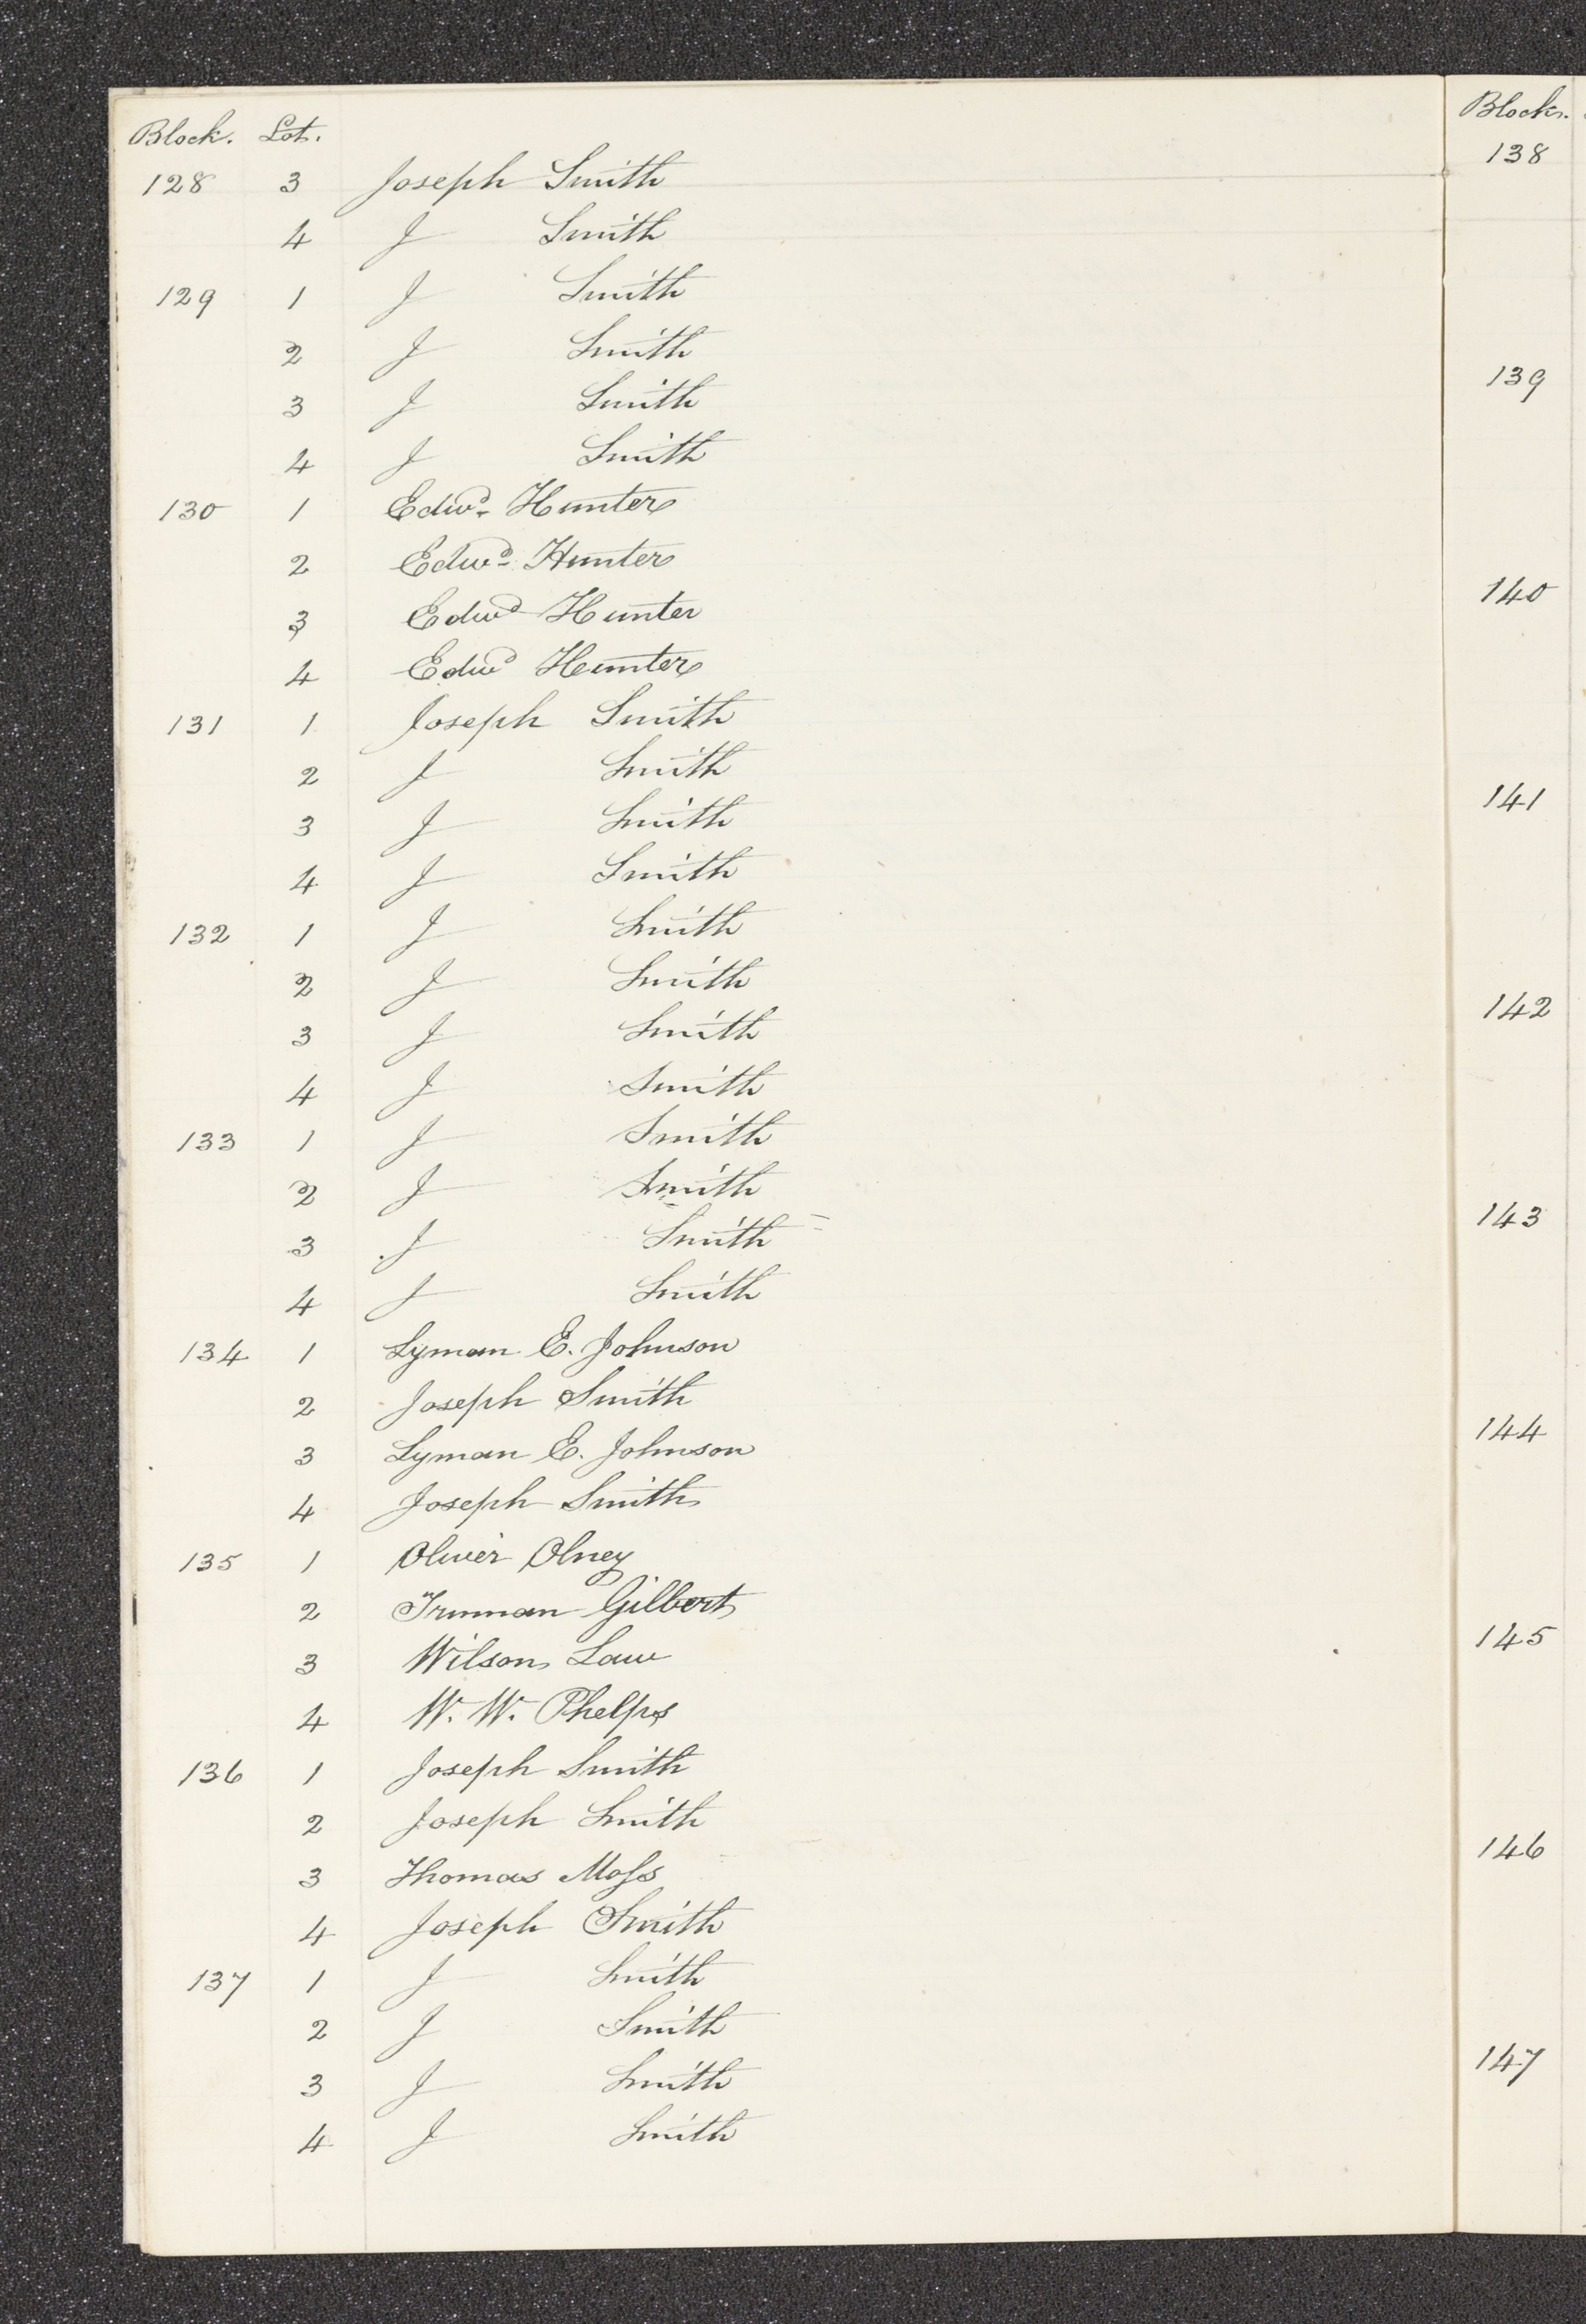 Block. Lot.
128 3 Joseph Smith
4 J Smith
129 1 J Smith
2 J Smith
3 J Smith
4 J Smith
130 1 Edwd. Hunter
2 Edwd. Hunter
3 Edwd Hunter
4 Edwd Hunter
131 1 Joseph Smith
2 J Smith
3 J Smith
4 J Smith
132 1 J Smith
2 J Smith
3 J Smith
4 J Smith
133 1 J Smith
2 J Smith
3 J Smith
4 J Smith
134 1 Lyman E. Johnson
2 Joseph Smith
3 Lyman E. Johnson
4 Joseph Smith
135 1 Oliver Olney
2 Truman Gilbert
3 Wilson Law
4 W. W. Phelps
136 1 Joseph Smith
2 Joseph Smith
3 Thomas Moss
4 Joseph Smith
137 1 J Smith
2 J Smith
3 J Smith
4 J Smith
Block.
138
139
140
141
142
143
144
145
146
147